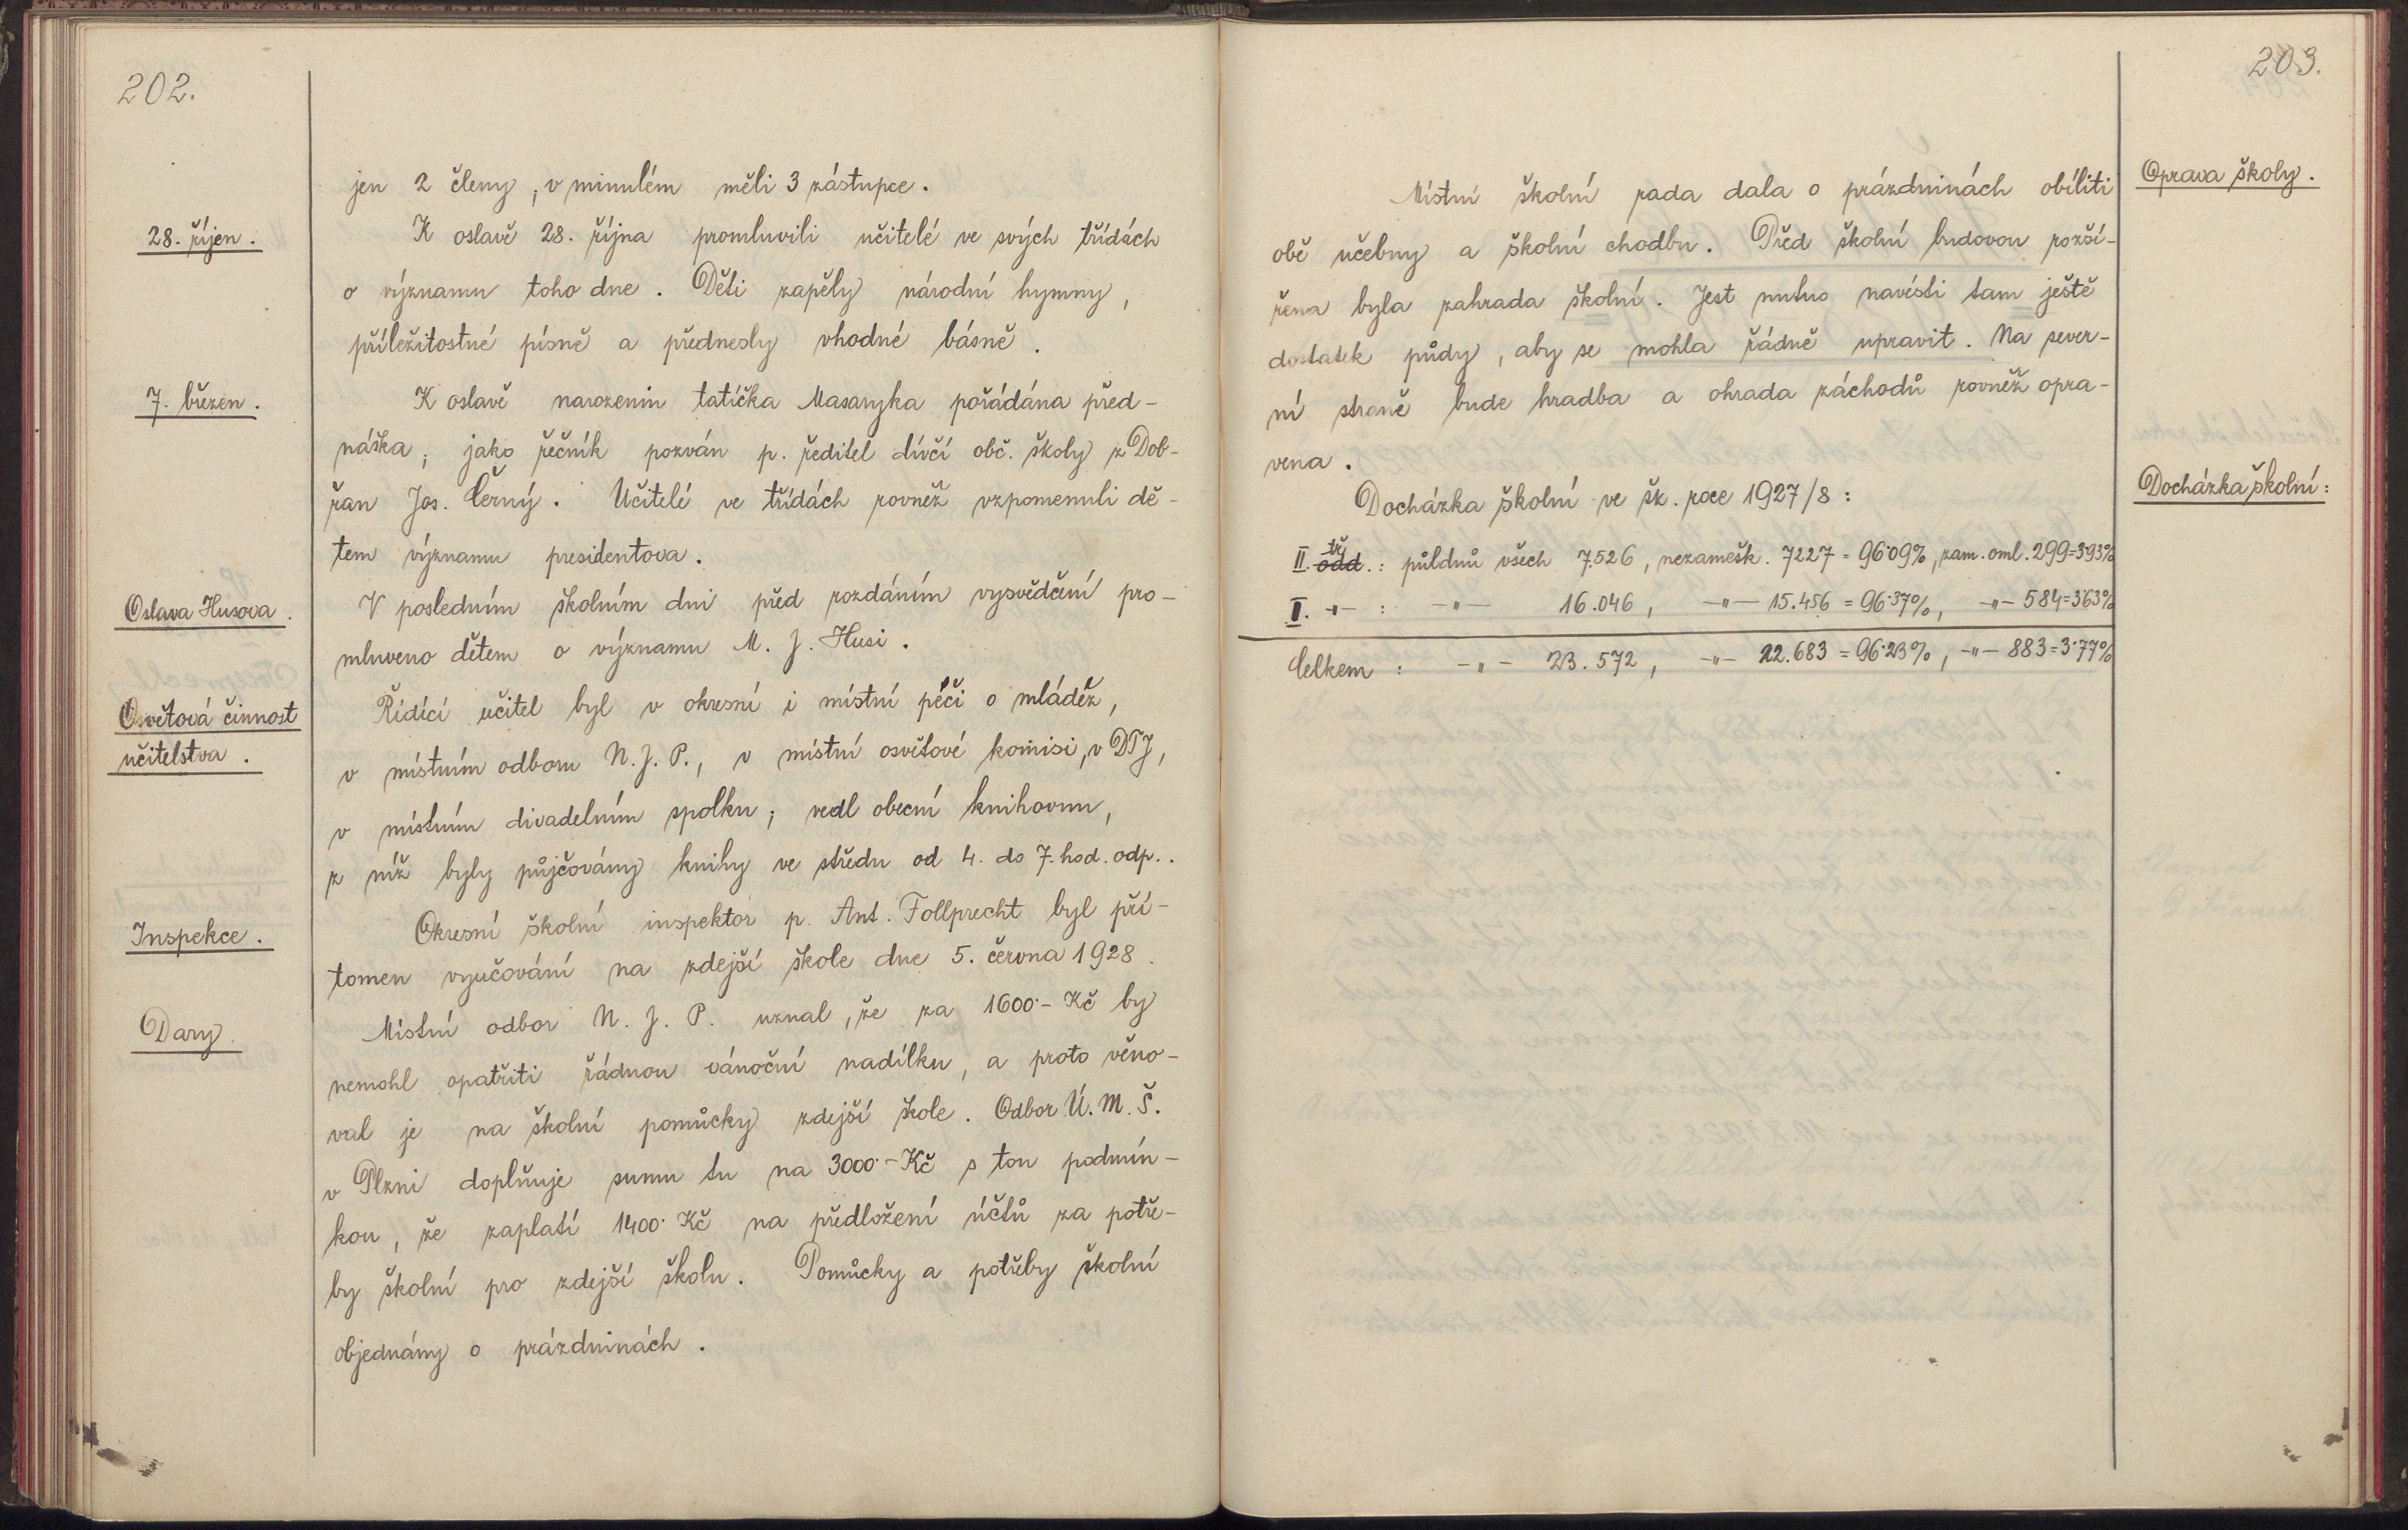 202.
jen 2 členy, v minulém měli 3 zástupce.
28. říjen.
K oslavě 28. října promluvili učitelé ve svých třídách
o významu toho dne. Děti zapěly národní hymny,
příležitostné písně a přednesly vhodné básně.
7. březen.
K oslavě narozenin tatíčka Masaryka pořádána před-
náška, jako řečník pozván p. ředitel dívčí obč. školy z Dob-
řan Jos. Černý. Učitelé ve třídách rovněž vzpomenuli dě-
tem významu presidentova.
Oslava Husova.
V posledním školním dni před rozdáním vysvědčení pro-
mluveno dětem o významu M. J. Husi.
Osvětová činnost
učitelstva.
Řídící učitel byl v okresní i místní péči o mládež,
v místním odboru N. J. P., v místní osvětové komisi, v DTJ,
v místním divadelním spolku; vedl obecní knihovnu,
z níž byly půjčovány knihy ve středu od 4. do 7. hod. odp..
Inspekce.
Okresní školní inspektor p. Ant. Follprecht byl pří-
tomen vyučování na zdejší škole dne 5. června 1928.
Dary.
Místní odbor N. J. P. uznal, že za 1600·- Kč by
nemohl opatřiti řádnou vánoční nadílku, a proto věno-
val je na školní pomůcky zdejší škole. Odbor Ú. M. Š.
v Plzni doplňuje sumu tu na 3000·- Kč s tou podmín-
kou, že zaplatí 1400· Kč na předložení účtů za potře-
by školní pro zdejší školu. Pomůcky a potřeby školní
objednány o prázdninách.
203.
Oprava školy.
Místní školní rada dala o prázdninách obíliti
obě učebny a školní chodbu. Před školní budovou rozší-
řena byla zahrada školní. Jest nutno navésti tam ještě
dostatek půdy, aby se mohla řádně upravit. Na sever-
ní straně bude hradba a ohrada záchodů rovněž opra-
vena.
Docházka školní:
Docházka školní ve šk. roce 1927/8:
II. odd. tř: půldnů všech 7.526, nezamešk. 7227 = 96·09%, zam. oml. 299=3·93%
I. -"- : -"- 16.046, -"- 15.456 = 96·37%, -"- 584=3·63%
Celkem : -"- 23.572, -"- 22.683 = 96·23%, -"- 883=3·77%